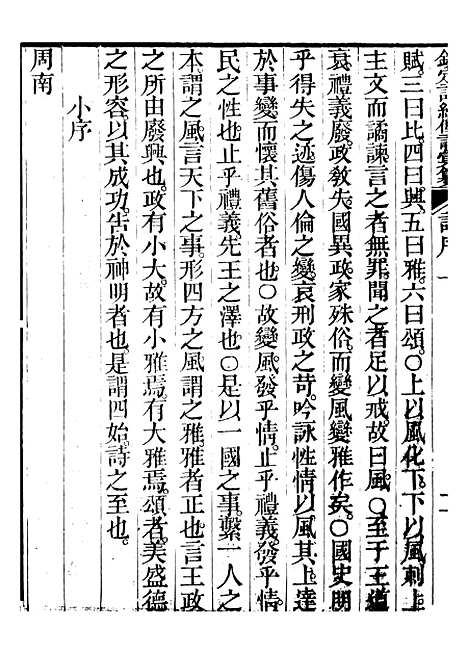 欽定詩經傳說彙纂 詩序
賦三曰比四曰興五曰雅六曰頌○上以風化下下以風刺上
主文而譎諫言之者無罪聞之者足以戒故曰風○至于王道
衰禮義廢政教失國異政家殊俗而變風變雅作矣○國史明
乎得失之迹傷人倫之變哀刑政之苛吟詠性情以風其上達
於事變而懷其舊俗者也○故變風發乎情止乎禮義發乎情
民之性也止乎禮義先王之澤也○是以一國之事繫一人之
本謂之風言天下之事形四方之風謂之雅雅者正也言王政
之所由廢興也政有小大故有小雅焉有大雅焉頌者美盛德
之形容以其成功告於神明者也是謂四始詩之至也
小序
周南